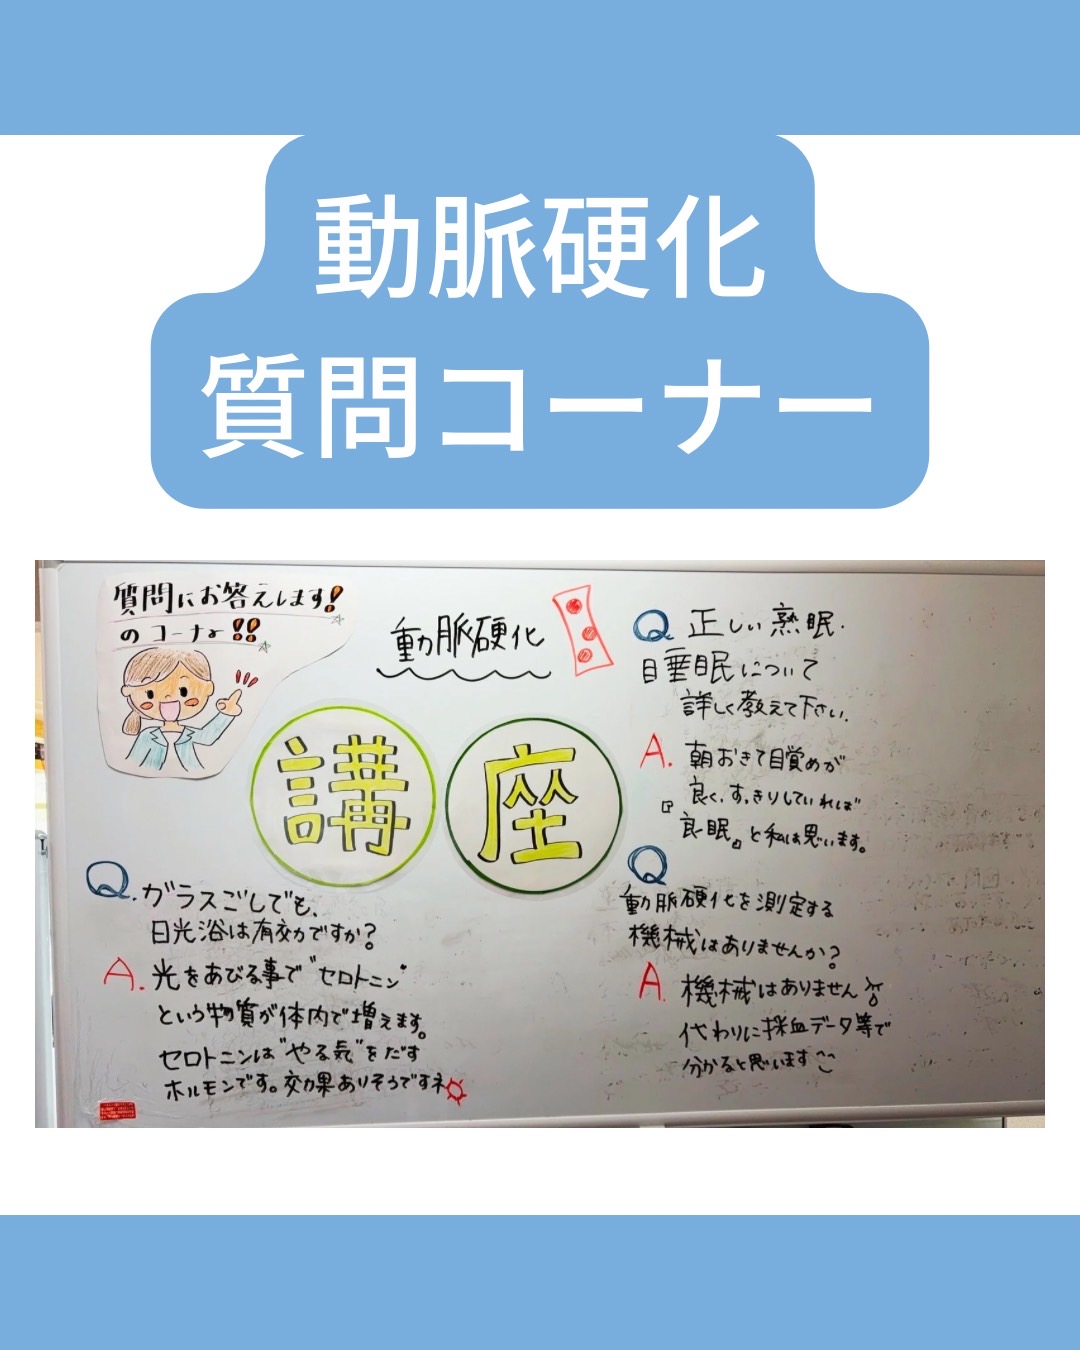 動脈硬化
質問コーナー
質問にお答えします!
のコーナー!!
動脈硬化
講座
Q.ガラスごしでも、
日光浴は有効ですか?
A.光をあびる事で"セロトニン"
という物質が体内で増えます。
セロトニンは"やる気"をだす
ホルモンです。効果ありそうですネ
Q正しい熟眠・
目垂眠について
詳しく教えて下さい。
A.朝おきて目覚めが
良く、すっきりしていれば
『良眠』と私は思います。
Q
動脈硬化を測定する
機械はありませんか?
A.機械はありません
代わりに採血データ等で
分かると思います